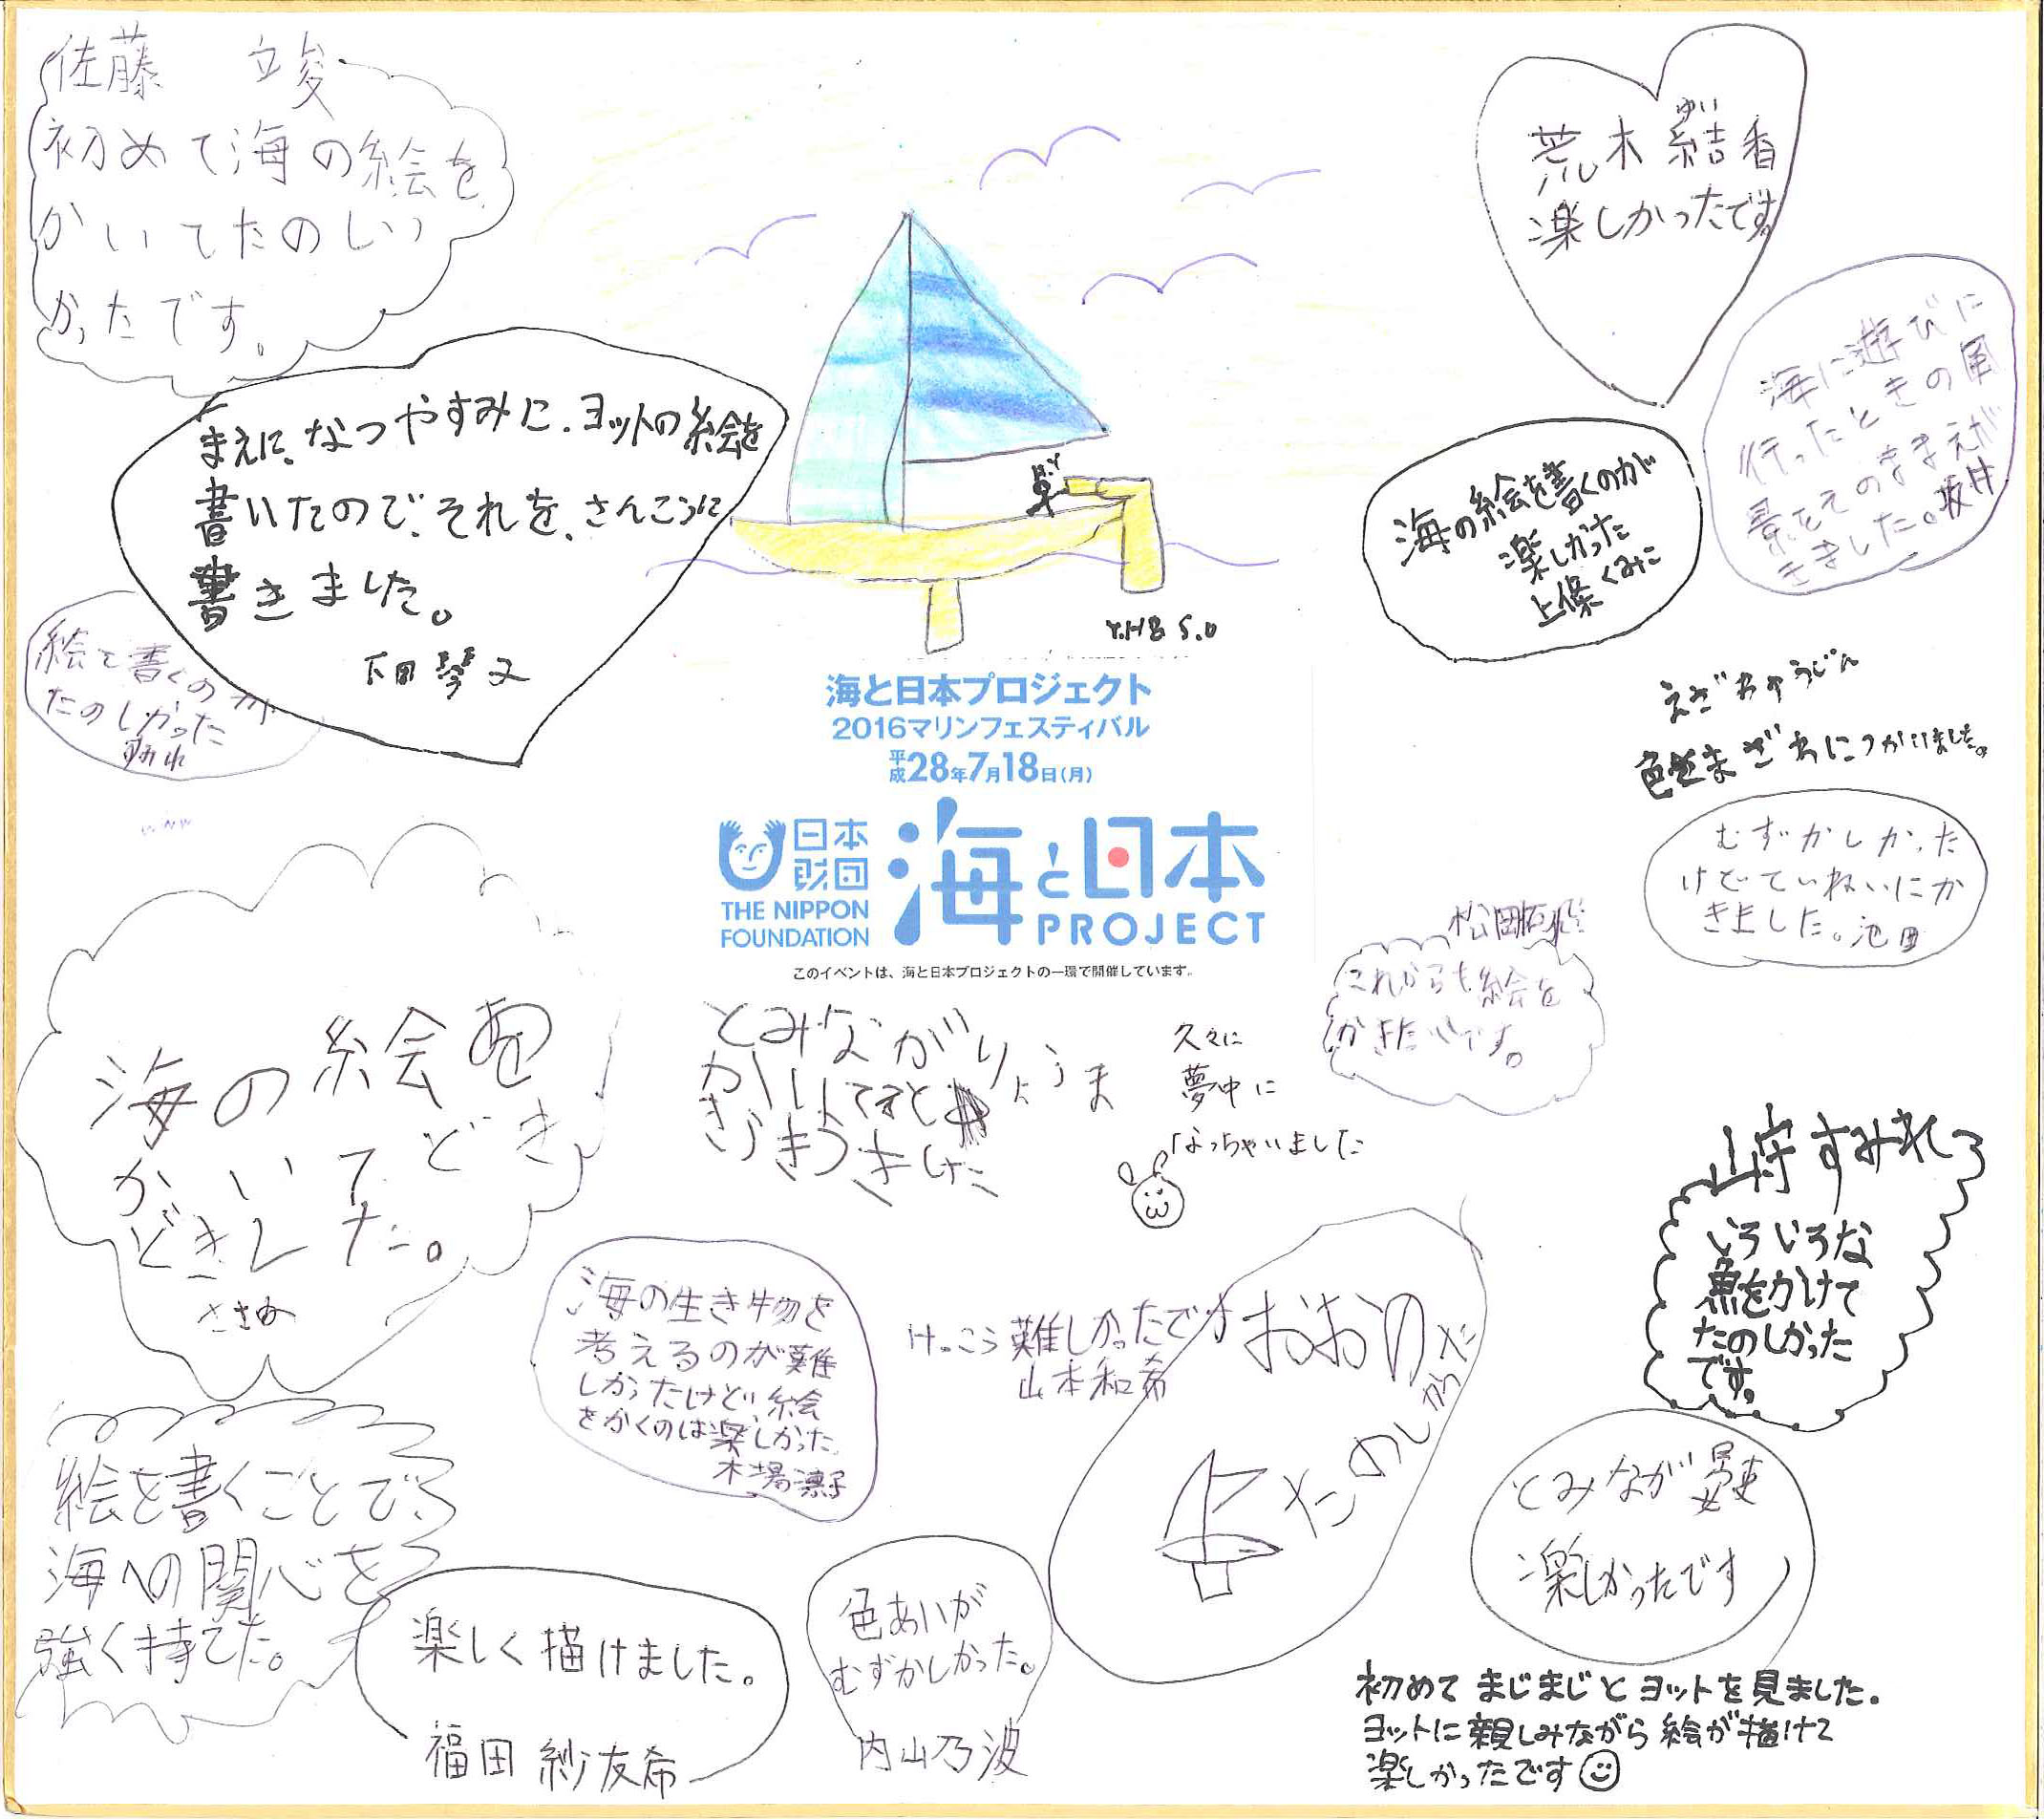 佐藤 立峻
初めて海の絵を
かいてたのしい
かったです。
まえに、なつやすみに、ヨットの絵を
書いたので、それを、さんこうに
書きました。
下田琴
絵を書くのが
たのしかった
荒木結香
ゆい
楽しかったです。
海に遊びに
行ったときの風
景をそのままえが
きました。坂井
海の絵を書くのが
楽しかった
上條くみこ
Y.H8 S.O
海と日本プロジェクト
2016マリンフェスティバル
平成28年7月18日(月)
日本
財団
THE NIPPON
FOUNDATION
海と日本
PROJECT
このイベントは、海と日本プロジェクトの一環で開催しています。
色をまぜにつかいました。
むずかしかった
けどていねいにか
きました。池田
松田
これからも絵を
かきたいです。
海の絵を
かいてどき
どきした。
とみながりょうま
久々に
夢中に
なっちゃいました
山守すみれ
いろいろな
魚をかけて
たのしかった
です。
海の生き物を
考えるのが難
しかったけど、絵
をかくのは楽しかった。
木場凛子
けっこう難しかったです
山本和希
おおの
たのしかった
絵を書くことで、
海への関心を
強く持てた。
楽しく描けました。
福田 紗友希
色あいが
むずかしかった。
内山乃波
とみなが
楽しかったです
初めて まじまじと ヨットを見ました。
ヨットに親しみながら 絵が描けて
楽しかったです